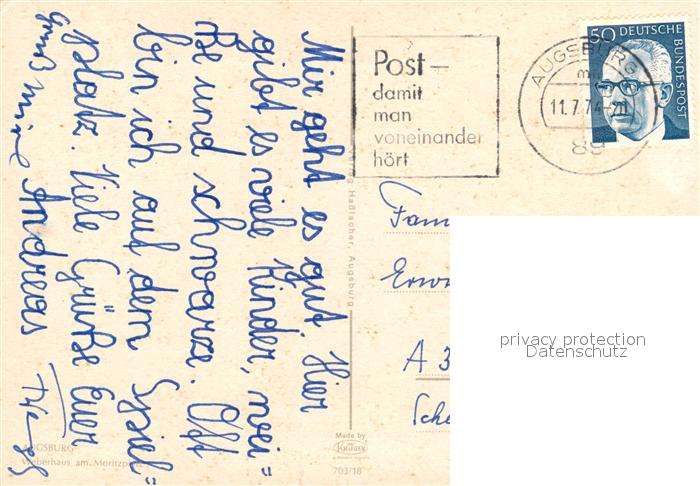 Mir geht es gut Hier
gibt es viele Kinder, wei=
ße und schwarze. Oft
bin ich auf dem Spiel=
platz. Viele Grüße Euer
Andreas
Post—
damit
man
voneinander
hört
AUGSBURG
11.7.74-21
89
50 DEUTSCHE
BUNDESPOST
Fam
Erw
A 3
Sche
privacy protection
Datenschutz
Haßlacher, Augsburg
Made by
Krüger
703/18
AUGSBURG
Weberhaus am Moritzplatz